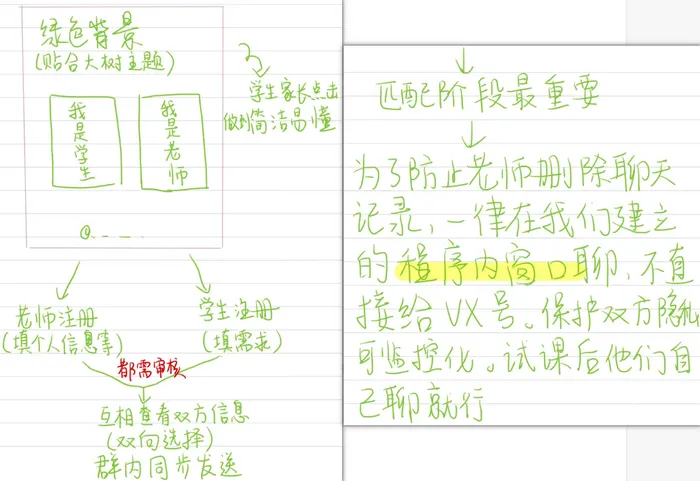 绿色背景
(贴合大树主题)
我是学生
我是老师
@.....
学生家长点击
做到简洁易懂
老师注册
(填个人信息等)
学生注册
(填需求)
都需审核
互相查看双方信息
(双向选择)
群内同步发送
匹配阶段最重要
为了防止老师删除聊天
记录,一律在我们建立
的程序内窗口聊,不直
接给VX号。保护双方隐私
可监控化。试课后他们自
己聊就行